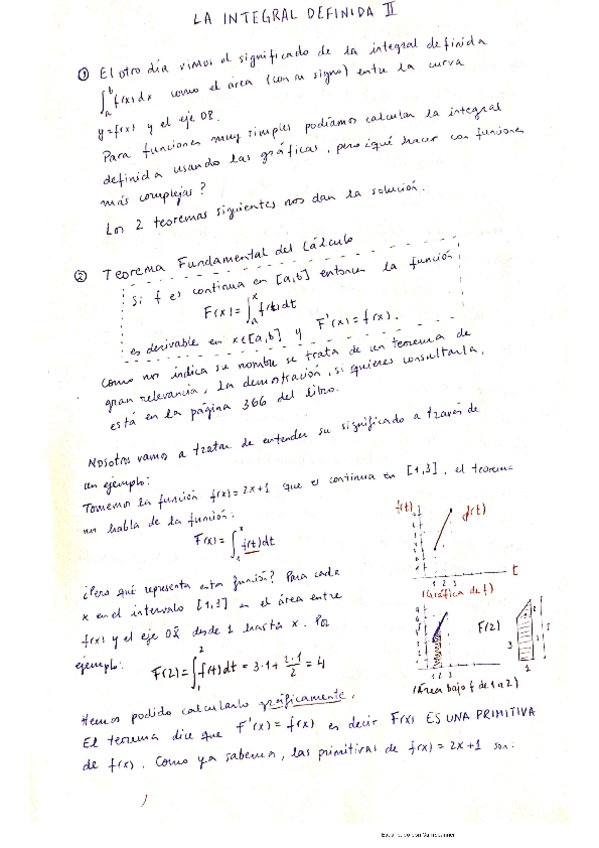 LA INTEGRAL DEFINIDA II
① El otro día vimos el significado de la integral definida
∫ₐᵇ f(x)dx como el área (con su signo) entre la curva
y=f(x) y el eje OX.
Para funciones muy simples podíamos calcular la integral
definida usando las gráficas, pero ¿qué hacer con funciones
más complejas?
Los 2 teoremas siguientes nos dan la solución.
② Teorema Fundamental del Cálculo
Si f es continua en [a,b] entonces la función
F(x)=∫ₐˣ f(t)dt
es derivable en x∈[a,b] y F'(x)=f(x).
Como nos indica su nombre se trata de un teorema de
gran relevancia. La demostración, si quieres consultarla,
está en la página 366 del libro.
Nosotros vamos a tratar de entender su significado a través de
un ejemplo:
Tomemos la función f(x)=2x+1 que es continua en [1,3], el teorema
nos habla de la función:
F(x)=∫₁ˣ f(t)dt
f(t)
f(t)
1 2 3
t
(Gráfica de f)
¿Pero qué representa esta función? Para cada
x en el intervalo [1,3] es el área entre
f(x) y el eje OX desde 1 hasta x. Por
ejemplo:
F(2)=∫₁² f(t)dt = 3·1 + 2·1/2 = 4
F(2)
1 2 3
3
2
5
1
(Área bajo f de 1 a 2)
Hemos podido calcularlo gráficamente.
El teorema dice que F'(x)=f(x) es decir F(x) ES UNA PRIMITIVA
de f(x). Como ya sabemos, las primitivas de f(x)=2x+1 son: